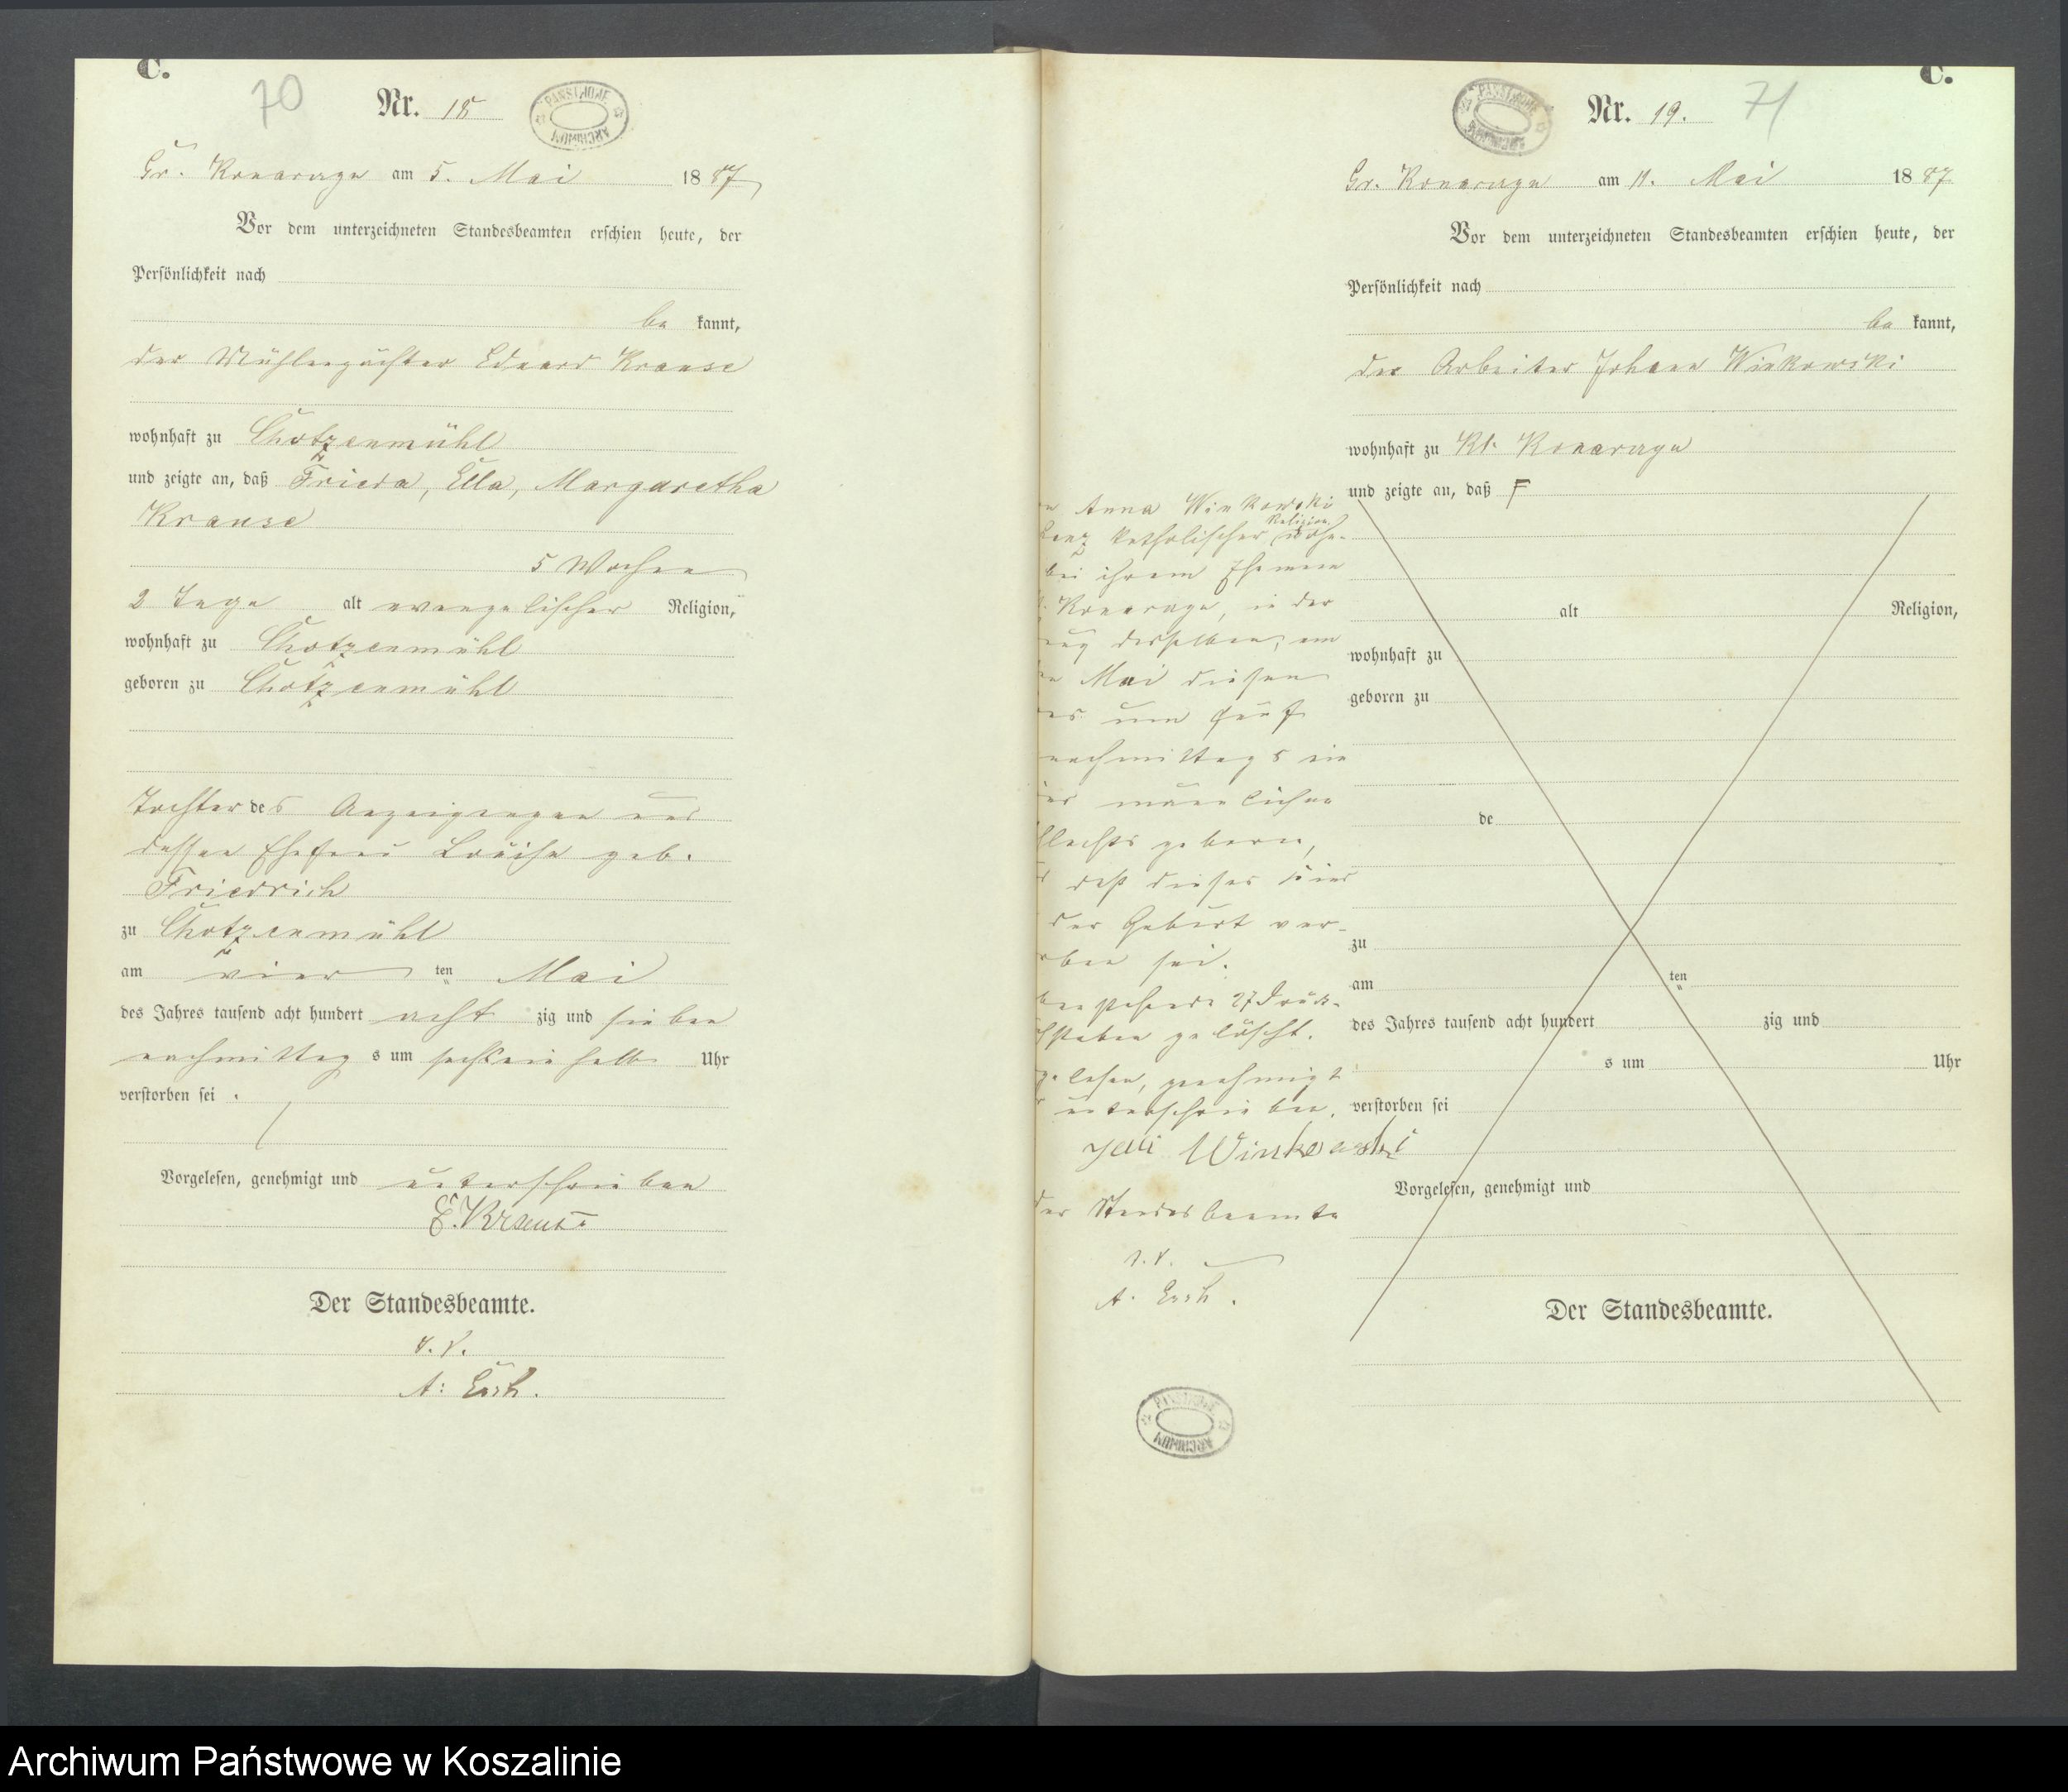 C.
70
Nr. 18
PAŃSTWOWE ARCHIWUM
Gr. Konarczyn am 5. Mai 1887
Vor dem unterzeichneten Standesbeamten erschien heute, der
Persönlichkeit nach
be kannt,
der Mühlenpächter Eduard Krause
wohnhaft zu Chotzenmühl
und zeigte an, daß Frieda, Ella, Margaretha
Krause
5 Wochen
2 Tage alt evangelischer Religion,
wohnhaft zu Chotzenmühl
geboren zu Chotzenmühl
Tochter des Anzeigenden und
dessen Ehefrau Louise geb.
Friedrich
zu Chotzenmühl
am vier ten Mai
des Jahres tausend acht hundert acht zig und sieben
nachmittag s um sechseinhalb Uhr
verstorben sei .
Vorgelesen, genehmigt und unterschrieben
E. Krause
Der Standesbeamte.
A:
C.
PAŃSTWOWE ARCHIWUM
Nr. 19.
71
Gr. Konarczyn am 11. Mai 1887
Vor dem unterzeichneten Standesbeamten erschien heute, der
Persönlichkeit nach
be kannt,
der Arbeiter Johann Winkowski
wohnhaft zu Kl. Konarczyn
und zeigte an, daß F
alt Religion,
wohnhaft zu
geboren zu
de
zu
am ten
des Jahres tausend acht hundert zig und
s um Uhr
verstorben sei
Vorgelesen, genehmigt und
Der Standesbeamte.
Anna Winkowski
Religion
katholischer wohn-
bei ihrem Ehemann
Konarczyn, in der
desselben, am
Mai diesen
um fünf
nachmittags ein
männlichen
geboren,
daß dieses Kind
der Geburt ver-
sei.
27 Druck-
gelöscht.
genehmigt
unterschrieben.
Jan Winkowski
der Standesbeamte
A.
PAŃSTWOWE ARCHIWUM
Archiwum Państwowe w Koszalinie